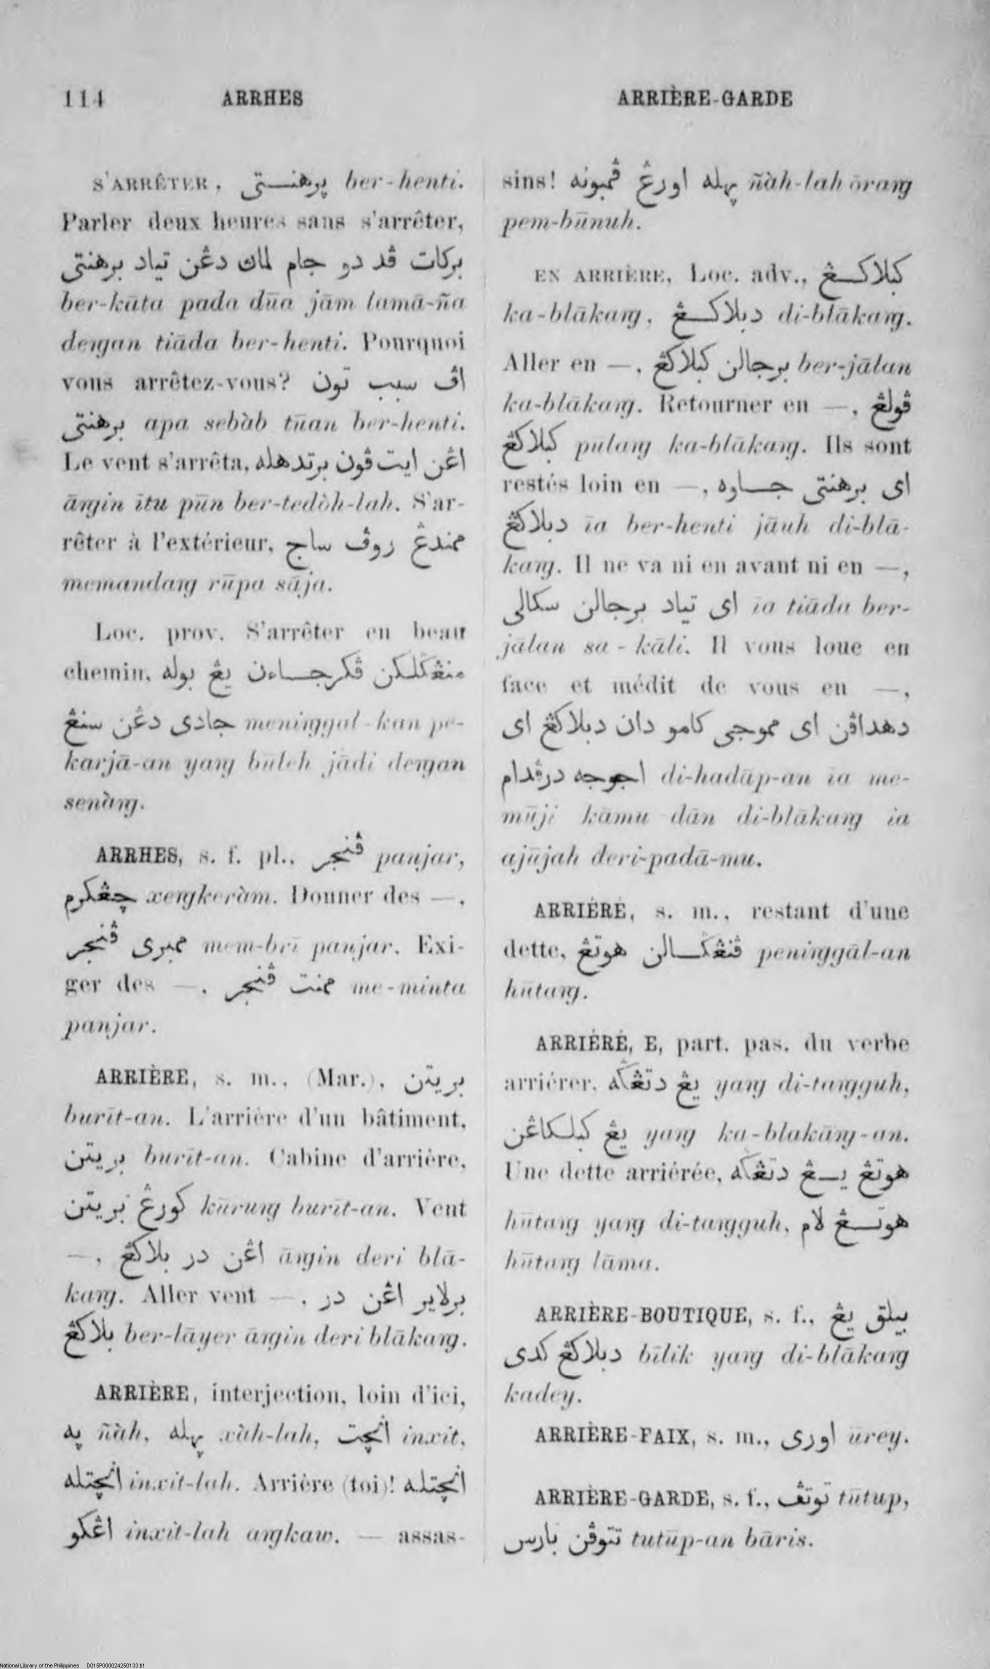 114 ARRHES ARRIÈRE-GARDE
S'ARRÊTER, برهنستي ber-henti.
Parler deux heures sans s'arrêter,
بركات ڤد دو جام لماڽ دڠن تياد برهنتي
ber-kāta pada dūa jām lamā-ña
deŋan tiāda ber-henti. Pourquoi
vous arrêtez-vous? اڤ سبب تون
برهنتي apa sebàb tūan ber-henti.
Le vent s'arrêta, اڠن ايت ڤون برتدهله
āŋin ītu pūn ber-tedòh-lah. S'ar-
rêter à l'extérieur, ممندڠ روڤ ساج
memandaŋ rūpa sāja.
Loc. prov. S'arrêter en beau
chemin, منڠݢلكن ڤكرجاءن يڠ بوله
جادي دڠن سنڠ meniŋgal-kan pe-
karjā-an yaŋ būleh jādi deŋan
senàŋ.
ARRHES, s. f. pl., ڤنجر panjar,
چڠكرم xeŋkeràm. Donner des —,
ممبري ڤنجر mem-brī panjar. Exi-
ger des —, ممنت ڤنجر me-minta
panjar.
ARRIÈRE, s. m., (Mar.), بريتن
burīt-an. L'arrière d'un bâtiment,
بريتن burīt-an. Cabine d'arrière,
كورڠ بريتن kūruŋ burīt-an. Vent
—, اڠن در بلاكڠ āŋin deri blā-
kaŋ. Aller vent —, برلاير اڠن در
بلاكڠ ber-lāyer āŋin deri blākaŋ.
ARRIÈRE, interjection, loin d'ici,
ڽه ñàh, چهله xàh-lah, انچت inxit,
انچتله inxit-lah. Arrière (toi)! انچتله
اڠكو inxit-lah aŋkaw. — assas-
sins! ڽهله اورڠ ڤمبونه ñàh-lah ōraŋ
pem-būnuh.
EN ARRIÈRE, Loc. adv., كبلاكڠ
ka-blākaŋ, دبلاكڠ di-blākaŋ.
Aller en —, برجالن كبلاكڠ ber-jālan
ka-blākaŋ. Retourner en —, ڤولڠ
كبلاكڠ pulaŋ ka-blākaŋ. Ils sont
restés loin en —, اي برهنتي جاوه
دبلاكڠ īa ber-henti jāuh di-blā-
kaŋ. Il ne va ni en avant ni en —,
اي تياد برجالن سكالي īa tiāda ber-
jālan sa-kāli. Il vous loue en
face et médit de vous en —,
دهداڤن اي مموجي كامو دان دبلاكڠ اي
اجوجه درڤدام di-hadāp-an īa me-
mūji kāmu dān di-blākaŋ īa
ajūjah deri-padā-mu.
ARRIÉRÉ, s. m., restant d'une
dette, ڤنڠݢالن هوتڠ peniŋgāl-an
hūtaŋ.
ARRIÉRÉ, E, part. pas. du verbe
arriérer, يڠ دتڠݢه yaŋ di-taŋguh,
يڠ كبلكاڠن yaŋ ka-blakāŋ-an.
Une dette arriérée, هوتڠ يڠ دتڠݢه
hūtaŋ yaŋ di-taŋguh, هوتڠ لام
hūtaŋ lāma.
ARRIÈRE-BOUTIQUE, s. f., بيلق يڠ
دبلاكڠ كدي bīlik yaŋ di-blākaŋ
kadey.
ARRIÈRE-FAIX, s. m., اوري ūrey.
ARRIÈRE-GARDE, s. f., توتڤ tūtup,
تتوڤن بارس tutūp-an bāris.
National Library of the Philippines